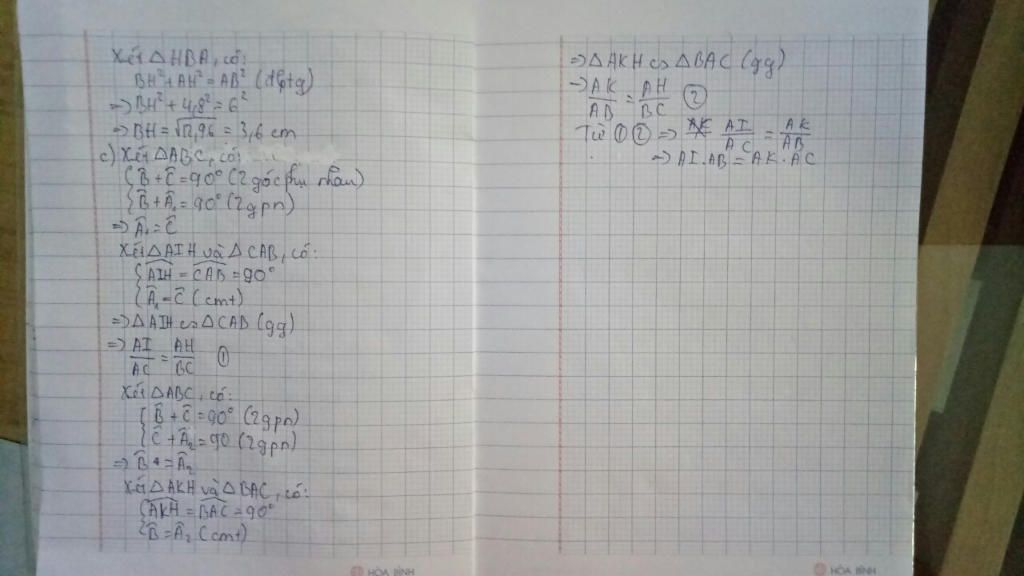 Xét △HBA, có:
BH² + AH² = AB² (đlptg)
=> BH² + 4,8² = 6²
=> BH = √12,96 = 3,6 cm
c) Xét △ABC, có:
{B̂ + Ĉ = 90° (2 góc phụ nhau)
{B̂ + Â₁ = 90° (2gpn)
=> Â₁ = Ĉ
Xét △AIH và △CAB, có:
{AIH = CAB = 90°
{Â₁ = Ĉ (cmt)
=> △AIH ∽ △CAB (gg)
=> AI/AC = AH/BC ①
Xét △ABC, có:
{B̂ + Ĉ = 90° (2gpn)
{Ĉ + Â₂ = 90 (2gpn)
=> B̂ = Â₂
Xét △AKH và △BAC, có:
{AKH = BAC = 90°
{B̂ = Â₂ (cmt)
=> △AKH ∽ △BAC (gg)
-> AK/AB = AH/BC ②
Từ ① ② => AI/AC = AK/AB
=> AI.AB = AK.AC
HÒA BÌNH
HÒA BÌNH